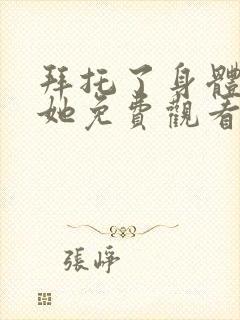 拜托了身體
她免費觀看
張崢